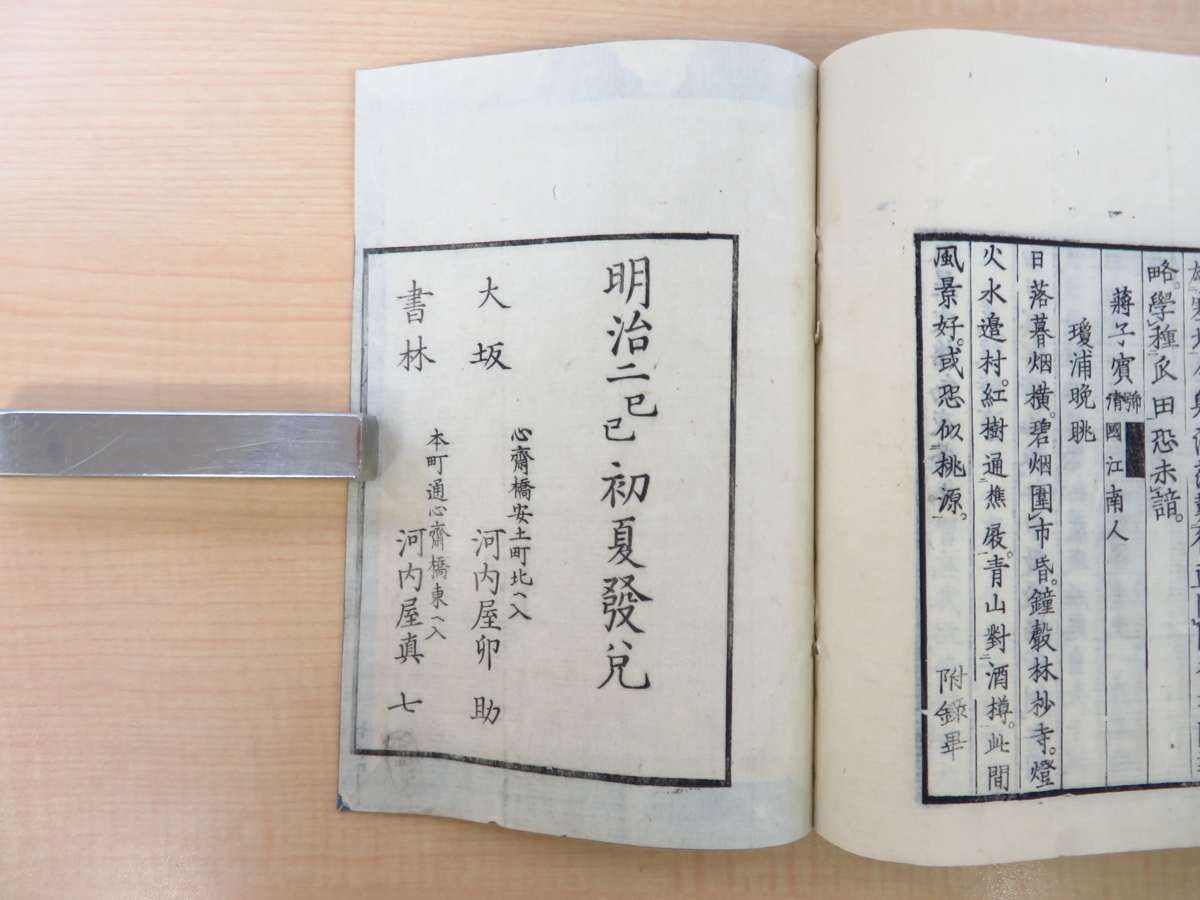 略。學種瓜田恐未諳。
蔣子賓 號 清國江南人
瓊浦晩眺
日落暮烟橫。碧烟圍市昏。鐘聲林杪寺。燈
火水邉村。紅樹通樵屐。青山對酒樽。此間
風景好。或恐似桃源。 附錄畢
明治二己巳初夏發兌
心齋橋安土町北ヘ入
大坂 河内屋卯助
本町通心齋橋東ヘ入
書林 河内屋真七